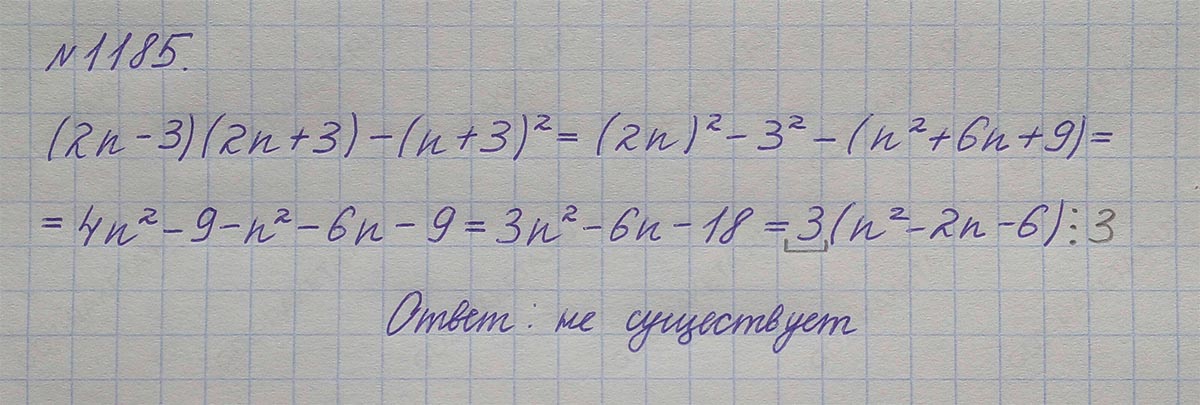 №1185.
(2n-3)(2n+3)-(n+3)²=(2n)²-3²-(n²+6n+9)=
=4n²-9-n²-6n-9=3n²-6n-18=3(n²-2n-6)⋮3
Ответ: не существует